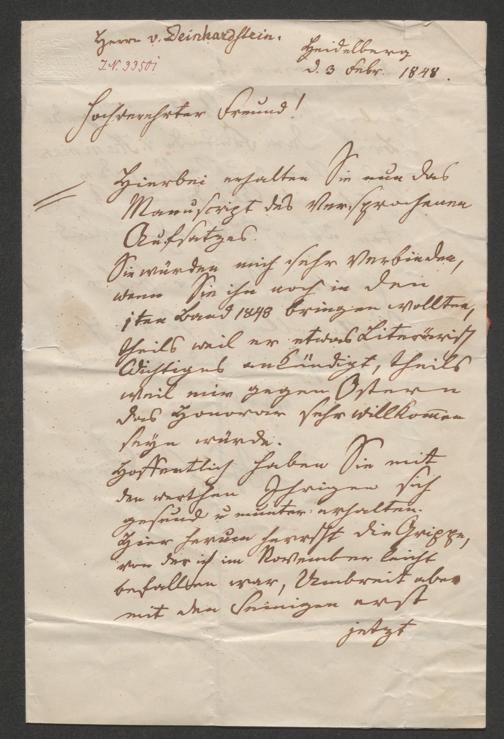 Herrn v. Deinhardstein.
I.N. 33501
Heidelberg
d. 3 Febr. 1848.
Hochverehrter Freund!
Hierbei erhalten Sie nun das
Manuscript des versprochenen
Aufsatzes.
Sie würden mich sehr verbinden,
wenn Sie ihn noch in den
1ten Band 1848 bringen wollten,
theils weil er etwas Literärisch
Wichtiges ankündigt, theils
weil mir gegen Ostern
das Honorar sehr willkommen
seyn würde.
Hoffentlich haben Sie mit
den werthen Ihrigen sich
gesund u munter erhalten.
Hier herum herrscht die Grippe,
von der ich im November leicht
befallen war, Umbreit aber
mit den Seinigen erst
jetzt